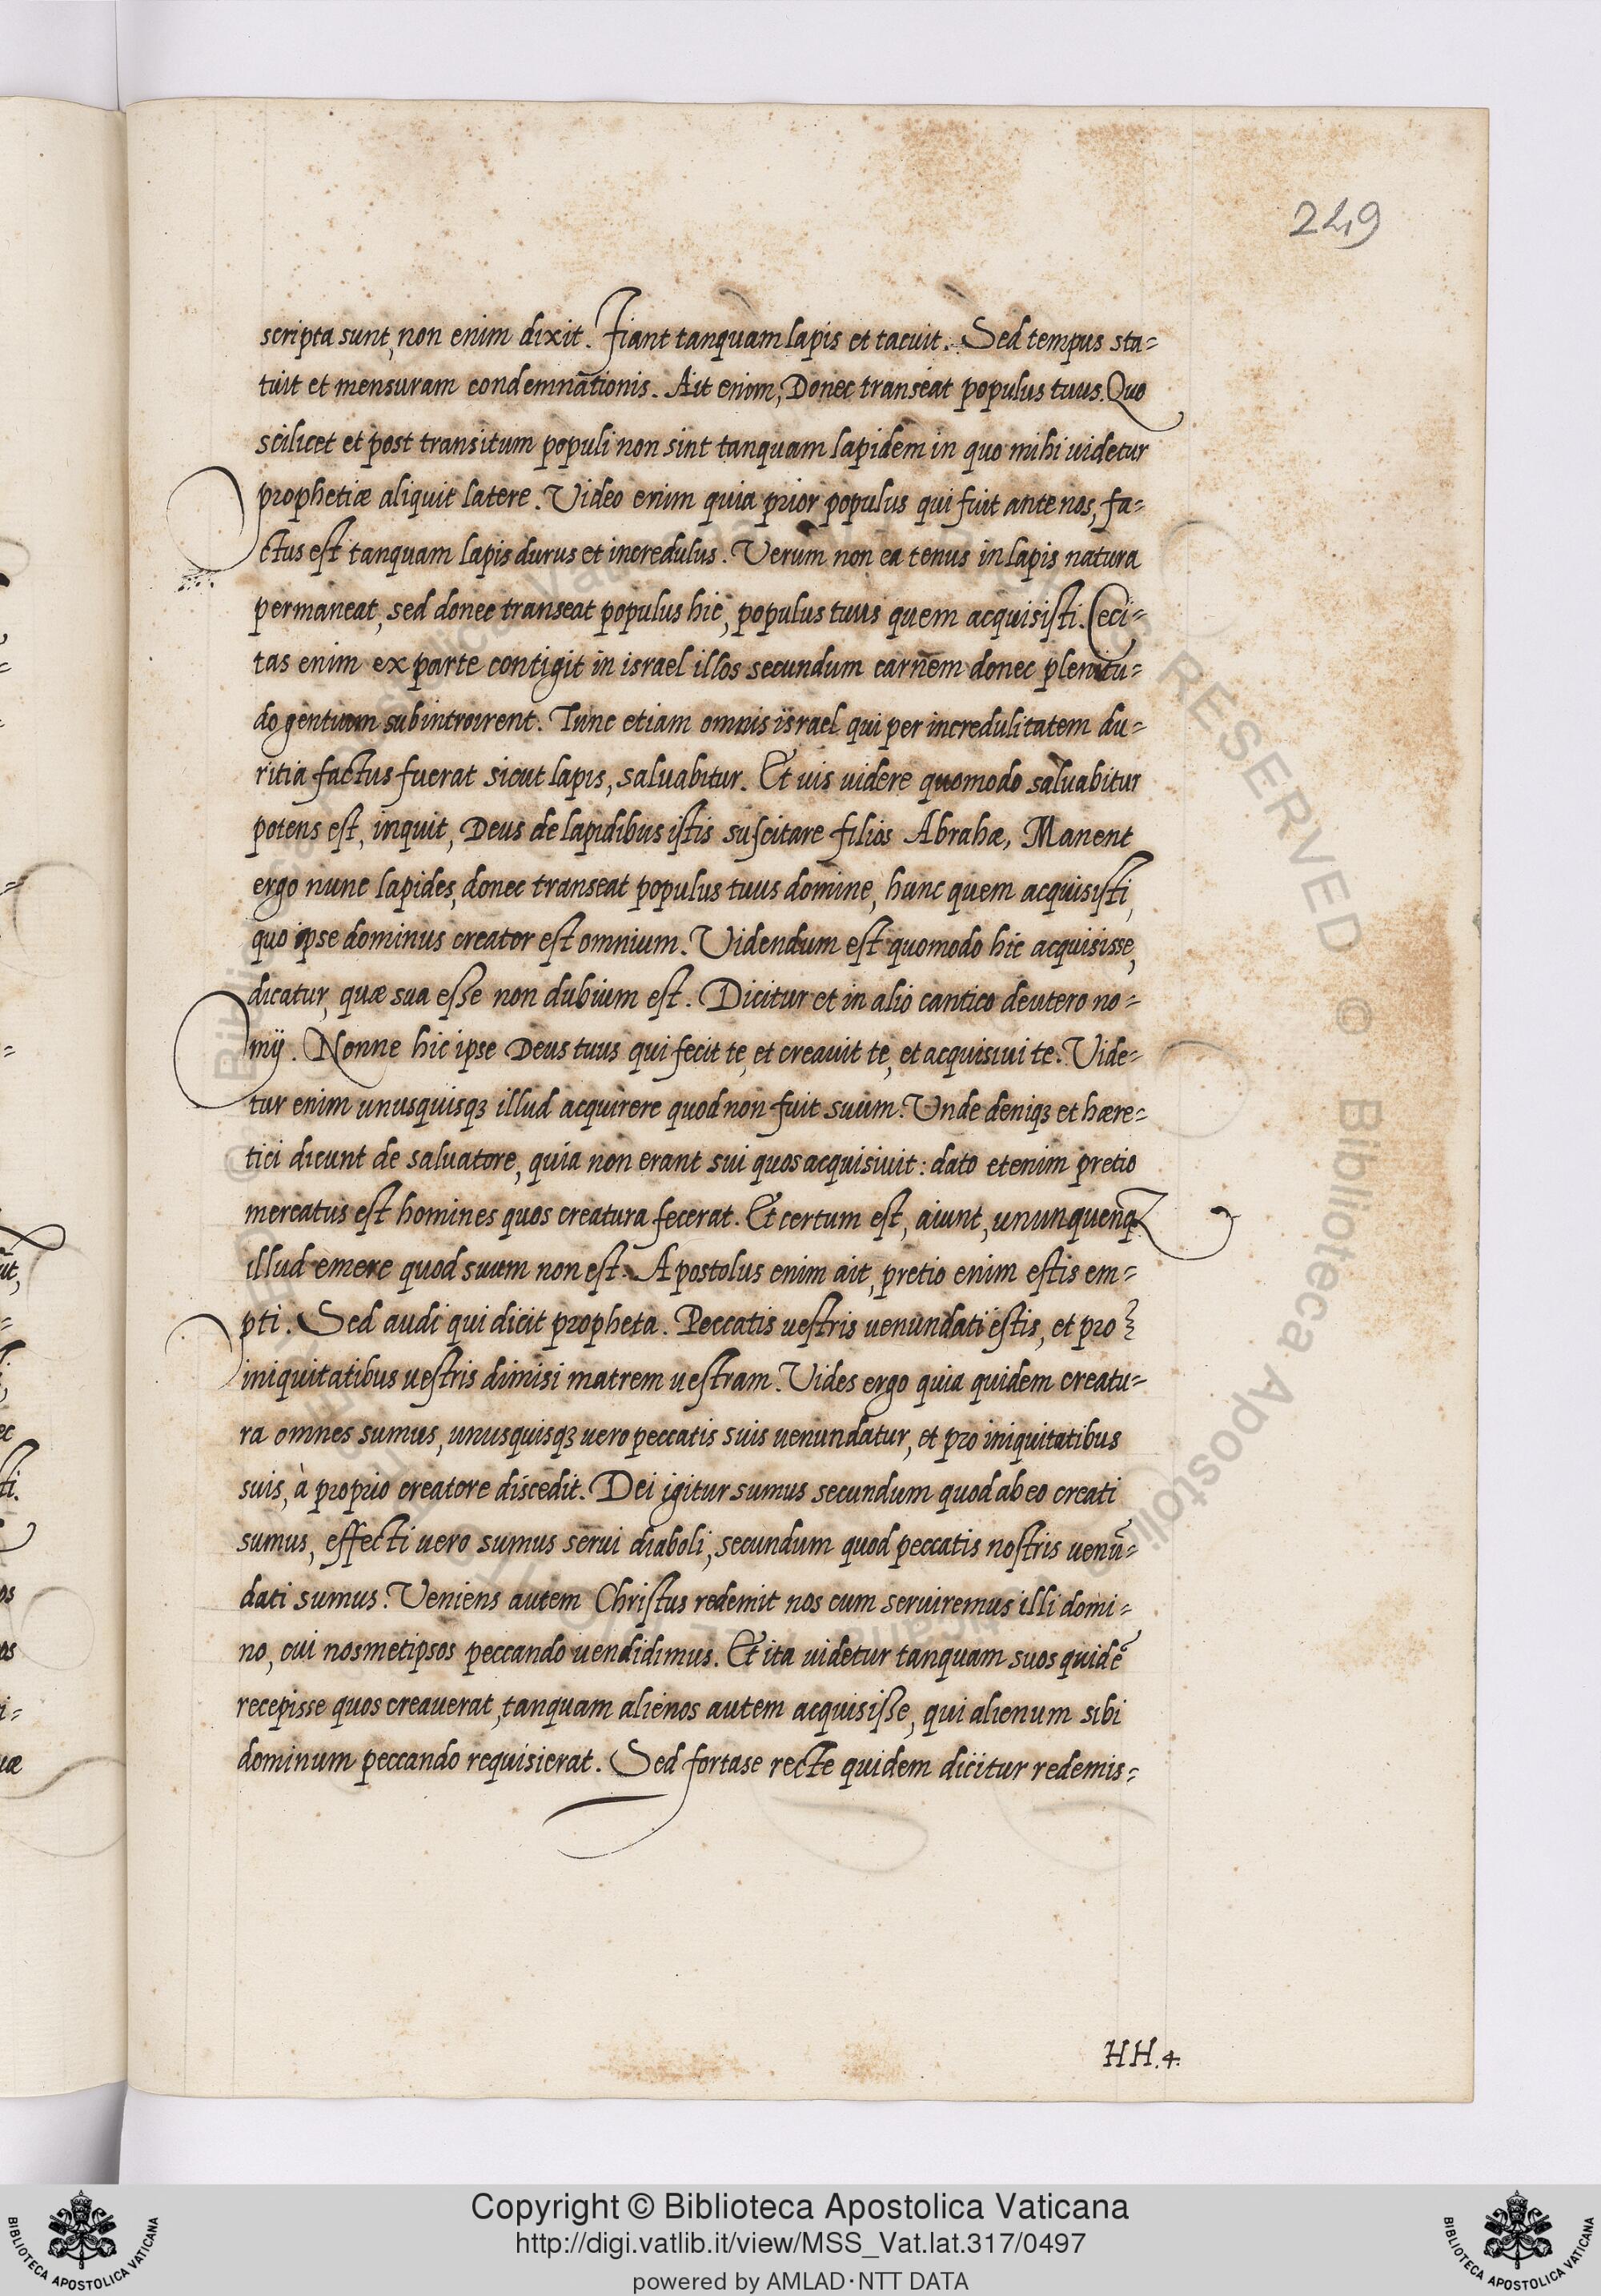 249
scripta sunt, non enim dixit. Fiant tanquam lapis et tacuit. Sed tempus sta=
tuit et mensuram condemnationis. Ait enim, Donec transeat populus tuus. Quo
scilicet et post transitum populi non sint tanquam lapidem in quo mihi uidetur
prophetiæ aliquit latere. Video enim quia prior populus qui fuit ante nos, fa=
ctus est tanquam lapis durus et incredulus. Verum non ea tenus in lapis natura
permaneat, sed donec transeat populus hic, populus tuus quem acquisisti. Ceci=
tas enim ex parte contigit in israel illos secundum carnem donec plenitu=
do gentium subintroirent. Tunc etiam omnis israel qui per incredulitatem du=
ritia factus fuerat sicut lapis, saluabitur. Et uis uidere quomodo saluabitur
potens est, inquit, Deus de lapidibus istis suscitare filios Abrahæ, Manent
ergo nunc lapides, donec transeat populus tuus domine, hunc quem acquisisti,
quo ipse dominus creator est omnium. Videndum est quomodo hic acquisisse,
dicatur, quæ sua esse non dubium est. Dicitur et in alio cantico deutero no=
mij. Nonne hic ipse Deus tuus qui fecit te, et creauit te, et acquisiui te. Vide=
tur enim unusquisqꝫ illud acquirere quod non fuit suum. Unde deniqꝫ et hære=
tici dicunt de saluatore, quia non erant sui quos acquisiuit: dato etenim pretio
mercatus est homines quos creatura fecerat. Et certum est, aiunt, ununquenqꝫ
illud emere quod suum non est. Apostolus enim ait, pretio enim estis em=
pti. Sed audi qui dicit propheta. Peccatis uestris uenundati estis, et pro
iniquitatibus uestris dimisi matrem uestram. Vides ergo quia quidem creatu=
ra omnes sumus, unusquisqꝫ uero peccatis suis uenundatur, et pro iniquitatibus
suis, à proprio creatore discedit. Dei igitur sumus secundum quod ab eo creati
sumus, effecti uero sumus serui diaboli, secundum quod peccatis nostris uenū=
dati sumus. Veniens autem Christus redemit nos cum seruiremus illi domi=
no, cui nosmetipsos peccando uendidimus. Et ita uidetur tanquam suos quidē
recepisse quos creauerat, tanquam alienos autem acquisisse, qui alienum sibi
dominum peccando requisierat. Sed fortase recte quidem dicitur redemis=
HH.4.
Copyright © Biblioteca Apostolica Vaticana
http://digi.vatlib.it/view/MSS_Vat.lat.317/0497
powered by AMLAD·NTT DATA
BIBLIOTECA APOSTOLICA VATICANA
BIBLIOTECA APOSTOLICA VATICANA